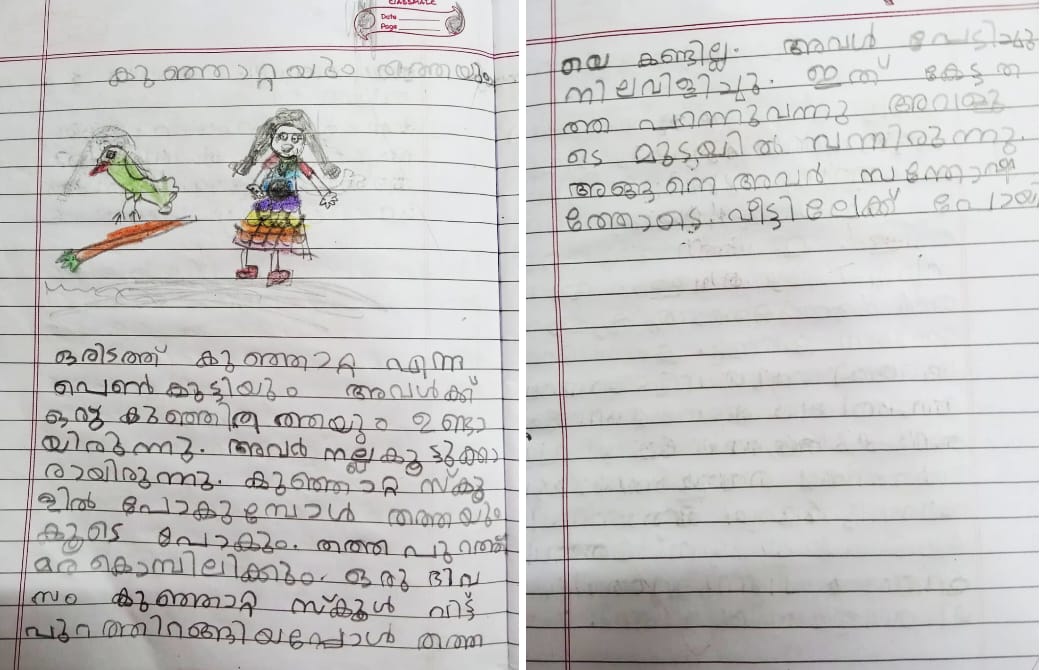 CLASSMATE
Date
Page
കുഞ്ഞാറ്റയും തത്തയും
ഒരിടത്ത് കുഞ്ഞാറ്റ എന്ന
പെൺകുട്ടിയും അവൾക്ക്
ഒരു കുഞ്ഞിത്തത്തയും ഉണ്ടാ
യിരുന്നു. അവർ നല്ല കൂട്ടുക്കാ
രായിരുന്നു. കുഞ്ഞാറ്റ സ്കൂ
ളിൽ പോകുമ്പോൾ തത്തയും
കൂടെ പോകും. തത്ത പുറത്ത്
മരകൊമ്പിലിരിക്കും. ഒരു ദിവ
സം കുഞ്ഞാറ്റ സ്കൂൾ വിട്ട്
പുറത്തിറങ്ങിയപ്പോൾ തത്ത
യെ കണ്ടില്ല. അവൾ പേടിച്ചു
നിലവിളിച്ചു. ഇത് കേട്ട ത
ത്ത പറന്നുവന്നു അവളു
ടെ മുടിയിൽ വന്നിരുന്നു.
അങ്ങനെ അവർ സന്തോഷ
ത്തോടെ വീട്ടിലേക്ക് പോയി